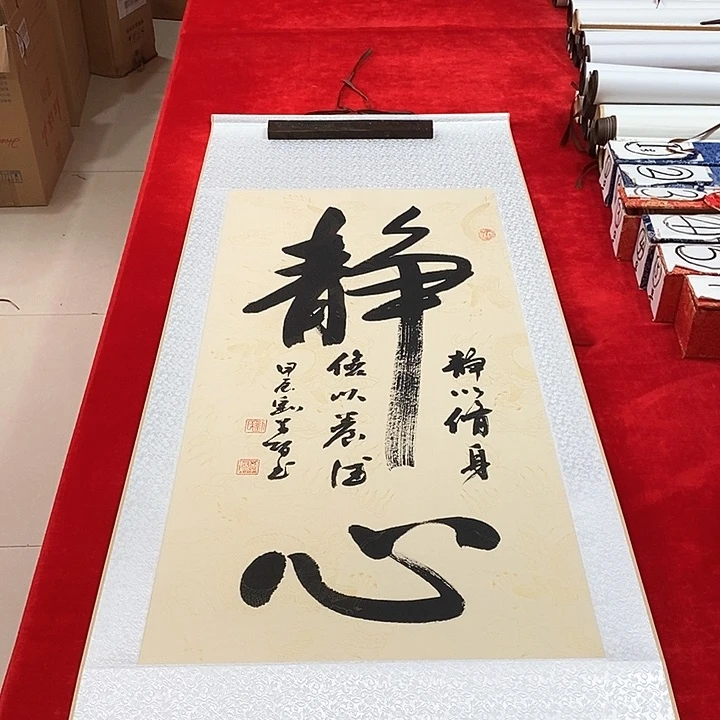 静心
静以修身
俭以养德
甲辰